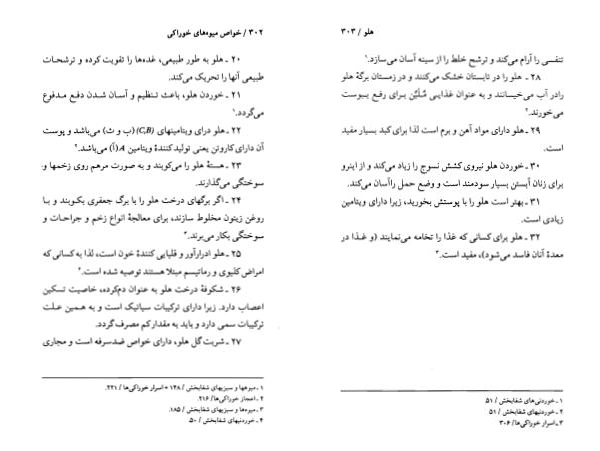 ۳۰۲ / خواص میوه‌های خوراکی
۲۰ ـ هلو به طور طبیعی، غده‌ها را تقویت کرده و ترشحات
طبیعی آنها را تحریک می‌کند.
۲۱ ـ خوردن هلو، باعث تنظیم و آسان شدن دفع مدفوع
می‌گردد.۱
۲۲ ـ هلو درای ویتامینهای (C,B) (ب و ث) می‌باشد و پوست
آن دارای کاروتن یعنی تولید کنندهٔ ویتامین A (آ) می‌باشد.۲
۲۳ ـ هستهٔ هلو را می‌کوبند و به صورت مرهم روی زخمها و
سوختگی می‌گذارند.
۲۴ ـ اگر برگهای درخت هلو را با برگ جعفری بکوبند و با
روغن زیتون مخلوط سازند، برای معالجهٔ انواع زخم و جراحات و
سوختگی بکار می‌برند.۳
۲۵ ـ هلو ادرارآور و قلیایی کنندهٔ خون است، لذا به کسانی که
امراض کلیوی و رماتیسم مبتلا هستند توصیه شده است.۴
۲۶ ـ شکوفهٔ درخت هلو به عنوان دم‌کرده، خاصیت تسکین
اعصاب دارد. زیرا دارای ترکیبات سیانیک است و به همین علت
ترکیبات سمی دارد و باید به مقدار کم مصرف گردد.
۲۷ ـ شربت گل هلو، دارای خواص ضدسرفه است و مجاری
۱ ـ میوه‌ها و سبزیهای شفابخش / ۱۴۸ + اسرار خوراکی‌ها / ۲۲۱.
۲ ـ اعجاز خوراکی‌ها / ۲۱۶.
۳ ـ میوه‌ها و سبزیهای شفابخش / ۱۸۵.
۴ ـ خوردنیهای شفابخش / ۵۰
هلو / ۳۰۳
تنفسی را آرام می‌کند و ترشح خلط را از سینه آسان می‌سازد.۱
۲۸ ـ هلو را در تابستان خشک می‌کنند و در زمستان برگهٔ هلو
رادر آب می‌خیسانند و به عنوان غذایی مُلَیِّن برای رفع یبوست
می‌خورند.۲
۲۹ ـ هلو دارای مواد آهن و برم است لذا برای کبد بسیار مفید
است.
۳۰ ـ خوردن هلو نیروی کشش نسوج را زیاد می‌کند و از اینرو
برای زنان آبستن بسیار سودمند است و وضع حمل راآسان می‌کند.
۳۱ ـ بهتر است هلو را با پوستش بخورید، زیرا دارای ویتامین
زیادی است.
۳۲ ـ هلو برای کسانی که غذا را تخامه می‌نمایند (و غذا در
معدهٔ آنان فاسد می‌شود)، مفید است.۳
۱ ـ خوردنی‌های شفابخش / ۵۱.
۲ ـ خوردنیهای شفابخش / ۵۱
۳ ـ اسرار خوراکی‌ها / ۳۰۶